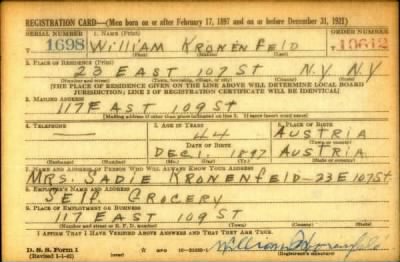 REGISTRATION CARD—(Men born on or after February 17, 1897 and on or before December 31, 1921)
SERIAL NUMBER 1. NAME (Print) ORDER NUMBER
T 1698 WILLIAM KRONENFELD 10612
(First) (Middle) (Last)
2. PLACE OF RESIDENCE (Print)
23 EAST 107 ST N.Y N.Y
(Number and street) (Town, township, village, or city) (County) (State)
[THE PLACE OF RESIDENCE GIVEN ON THE LINE ABOVE WILL DETERMINE LOCAL BOARD
JURISDICTION; LINE 2 OF REGISTRATION CERTIFICATE WILL BE IDENTICAL]
3. MAILING ADDRESS
117 EAST 109 ST
[Mailing address if other than place indicated on line 2. If same insert word same]
4. TELEPHONE 5. AGE IN YEARS 6. PLACE OF BIRTH
— 44 AUSTRIA
DATE OF BIRTH (Town or county)
DEC 1, 1897 AUSTRIA
(Exchange) (Number) (Mo.) (Day) (Yr.) (State or country)
7. NAME AND ADDRESS OF PERSON WHO WILL ALWAYS KNOW YOUR ADDRESS
MRS. SADIE KRONENFELD-23 E 107 ST
8. EMPLOYER'S NAME AND ADDRESS
SELF GROCERY
9. PLACE OF EMPLOYMENT OR BUSINESS
117 EAST 109 ST
(Number and street or R. F. D. number) (Town) (County) (State)
I AFFIRM THAT I HAVE VERIFIED ABOVE ANSWERS AND THAT THEY ARE TRUE.
D. S. S. Form 1
(Revised 1-1-42) (over) William Kronenfeld
(Registrant's signature)